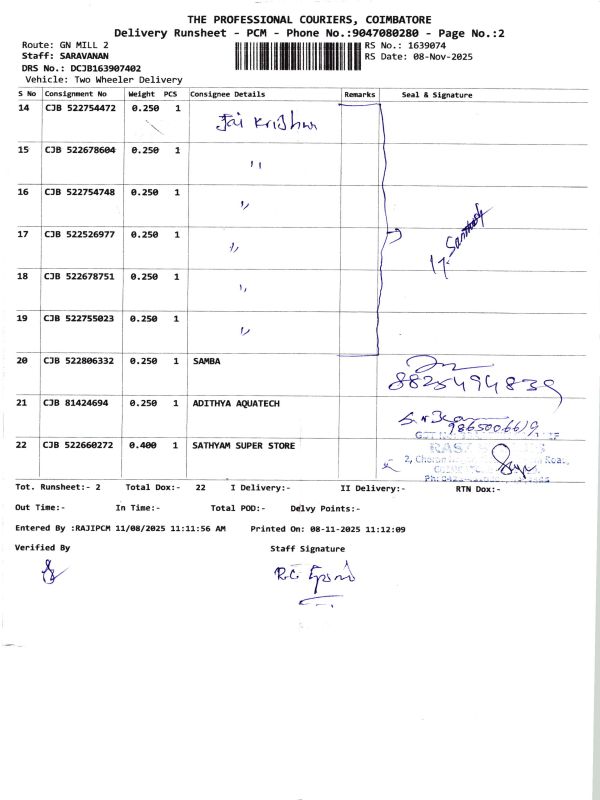 THE PROFESSIONAL COURIERS, COIMBATORE
Delivery Runsheet - PCM - Phone No.:9047080280 - Page No.:2
Route: GN MILL 2 RS No.: 1639074
Staff: SARAVANAN RS Date: 08-Nov-2025
DRS No.: DCJB163907402
Vehicle: Two Wheeler Delivery
S No Consignment No Weight PCS Consignee Details Remarks Seal & Signature
14 CJB 522754472 0.250 1 Jai Krishna
15 CJB 522678604 0.250 1 ,,
16 CJB 522754748 0.250 1 ,,
17 CJB 522526977 0.250 1 ,,
18 CJB 522678751 0.250 1 ,,
19 CJB 522755023 0.250 1 ,,
20 CJB 522806332 0.250 1 SAMBA
8825494839
21 CJB 81424694 0.250 1 ADITHYA AQUATECH
9865006619
22 CJB 522660272 0.400 1 SATHYAM SUPER STORE
Tot. Runsheet:- 2 Total Dox:- 22 I Delivery:- II Delivery:- RTN Dox:-
Out Time:- In Time:- Total POD:- Delvy Points:-
Entered By :RAJIPCM 11/08/2025 11:11:56 AM Printed On: 08-11-2025 11:12:09
Verified By Staff Signature